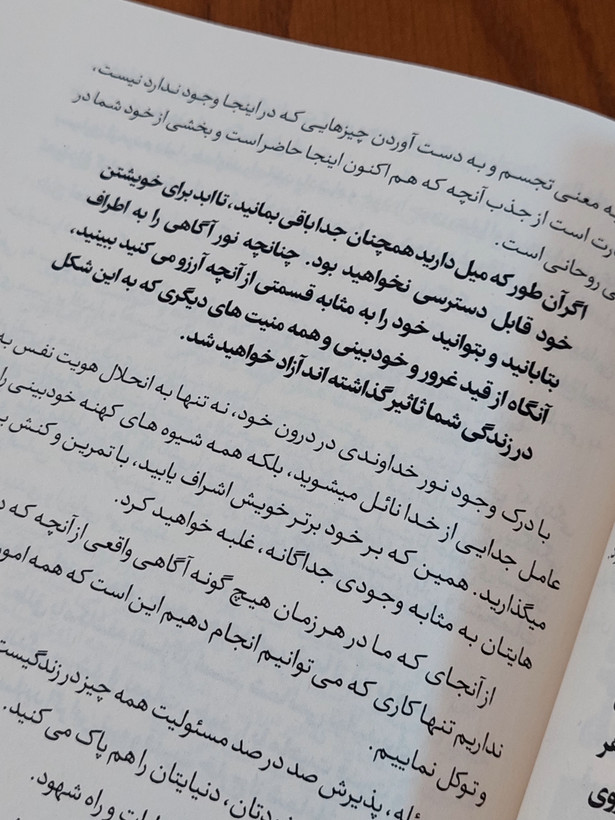 ه معنی تجسم و به دست آوردن چیزهایی که در اینجا وجود ندارد نیست،
رت است از جذب آنچه که هم اکنون اینجا حاضر است و بخشی از خود شما در
ی روحانی است.
اگر آن طور که میل دارید همچنان جدا باقی بمانید، تا ابد برای خویشتن
خود قابل دسترسی نخواهید بود. چنانچه نور آگاهی را به اطراف
بتابانید و بتوانید خود را به مثابه قسمتی از آنچه آرزو می کنید ببینید،
آنگاه از قید غرور و خودبینی و همه منیت های دیگری که به این شکل
در زندگی شما تاثیر گذاشته اند آزاد خواهید شد.
با درک وجود نور خداوندی در درون خود، نه تنها به انحلال هویت نفس به
عامل جدایی از خدا نائل میشوید، بلکه همه شیوه های کهنه خودبینی را
میگذارید. همین که بر خود برتر خویش اشراف یابید، با تمرین و کنش
هایتان به مثابه وجودی جداگانه، غلبه خواهید کرد.
از آنجای که ما در هر زمان هیچ گونه آگاهی واقعی از آنچه که
نداریم تنها کاری که می توانیم انجام دهیم این است که همه امور
و توکل نماییم.
پذیرش صد در صد مسئولیت همه چیز در زندگیست
دنیایتان را هم پاک می کنید.
و راه شهود.
وی